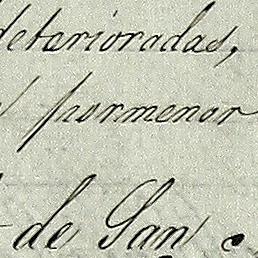 deterioradas,
pormenor
de San